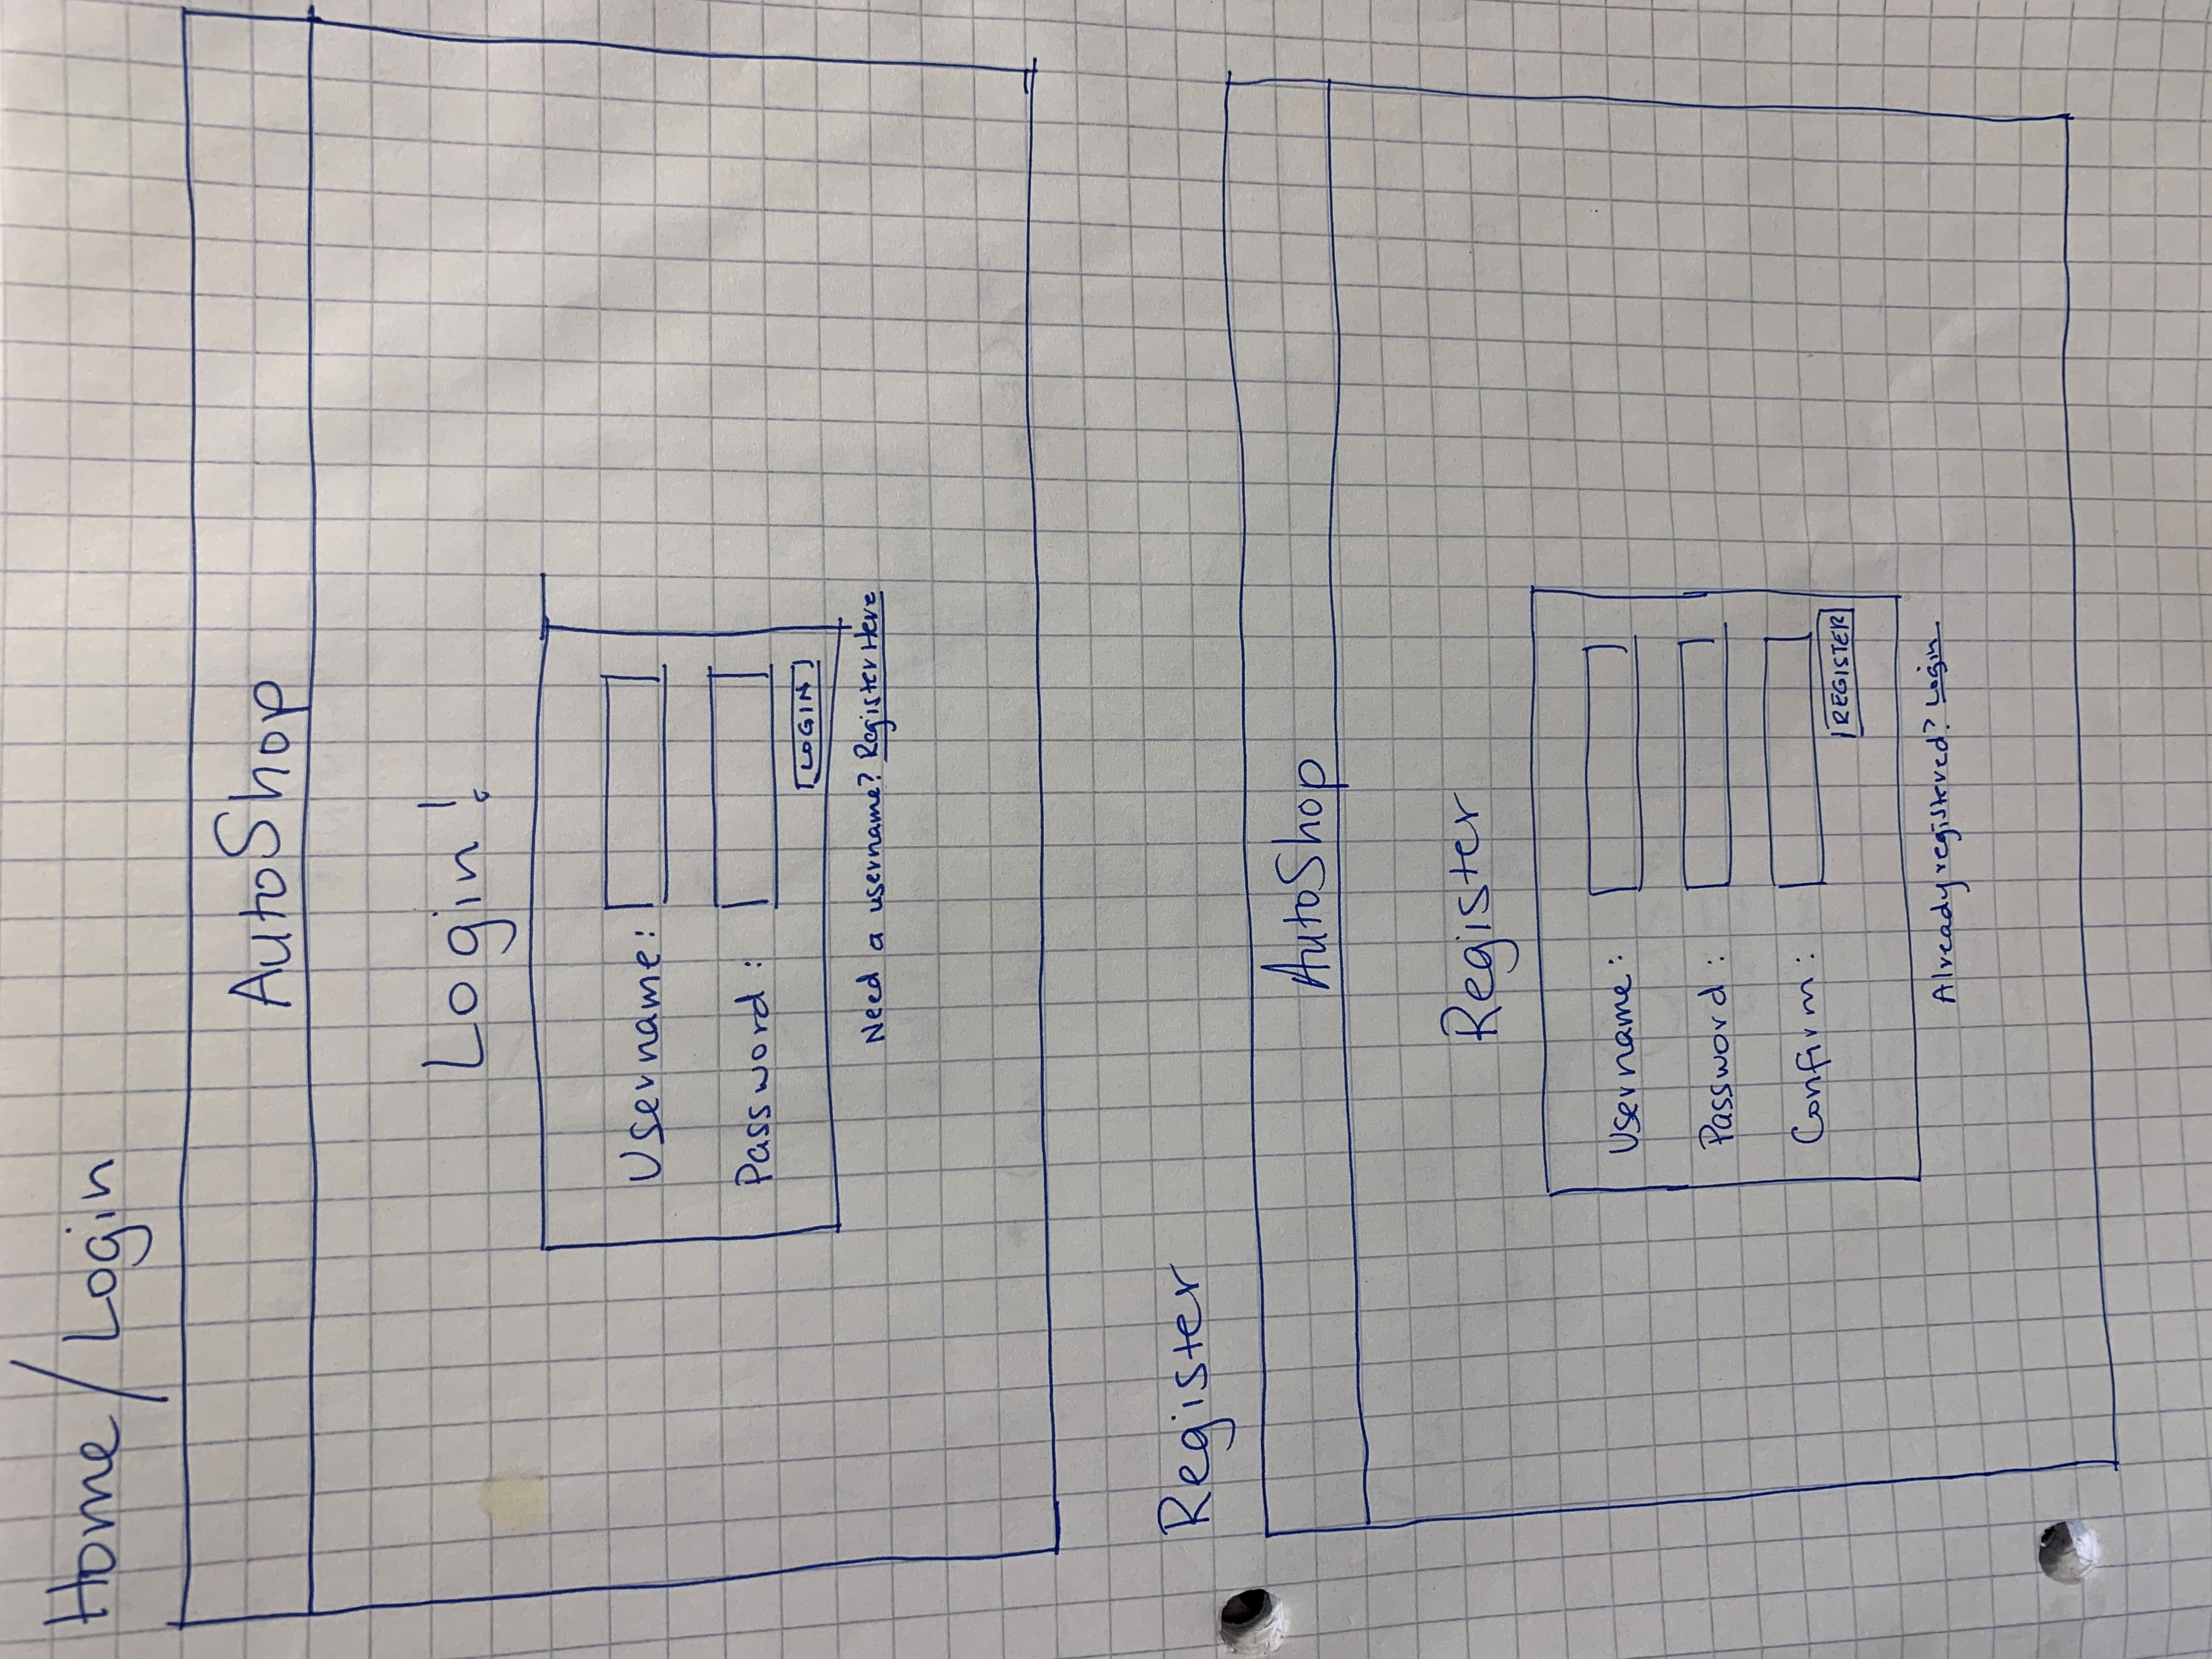 Home / Login
AutoShop
Login!
Username:
Password:
LOGIN
Need a username? Register Here
Register
AutoShop
Register
Username:
Password:
Confirm:
REGISTER
Already registered? Login